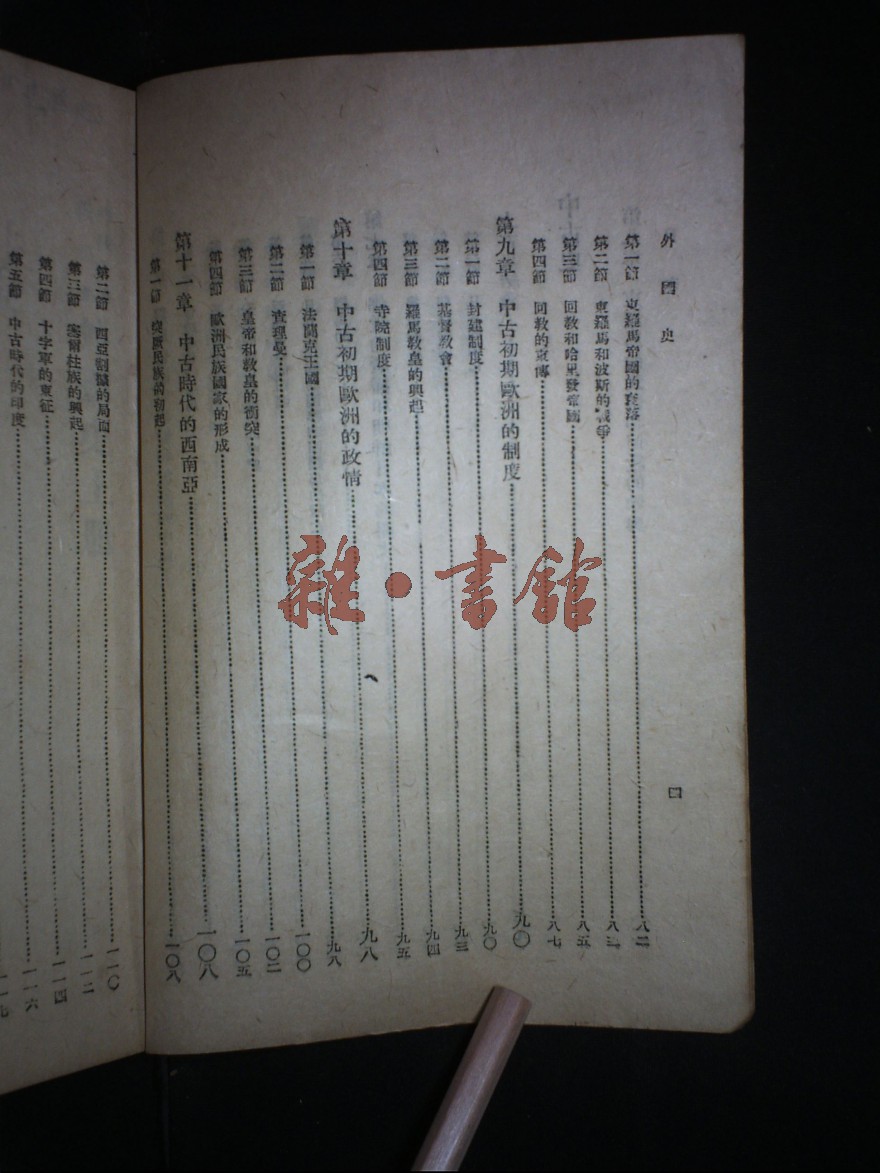 外國史
四
第一節 東羅馬帝國的衰落……八二
第二節 東羅馬和波斯的戰爭……八三
第三節 回教和哈里發帝國……八五
第四節 回教的東傳……八七
第九章 中古初期歐洲的制度……九〇
第一節 封建制度……九〇
第二節 基督教會……九三
第三節 羅馬教皇的興起……九四
第四節 寺院制度……九五
第十章 中古初期歐洲的政情……九八
第一節 法蘭克王國……九八
第二節 查理曼……一〇〇
第三節 皇帝和教皇的衝突……一〇二
第四節 歐洲民族國家的形成……一〇五
第十一章 中古時代的西南亞……一〇八
第一節 突厥民族的初起……一〇八
第二節 西亞割據的局面……一一〇
第三節 塞爾柱族的興起……一一二
第四節 十字軍的東征……一一四
第五節 中古時代的印度……一一六
雜·書館